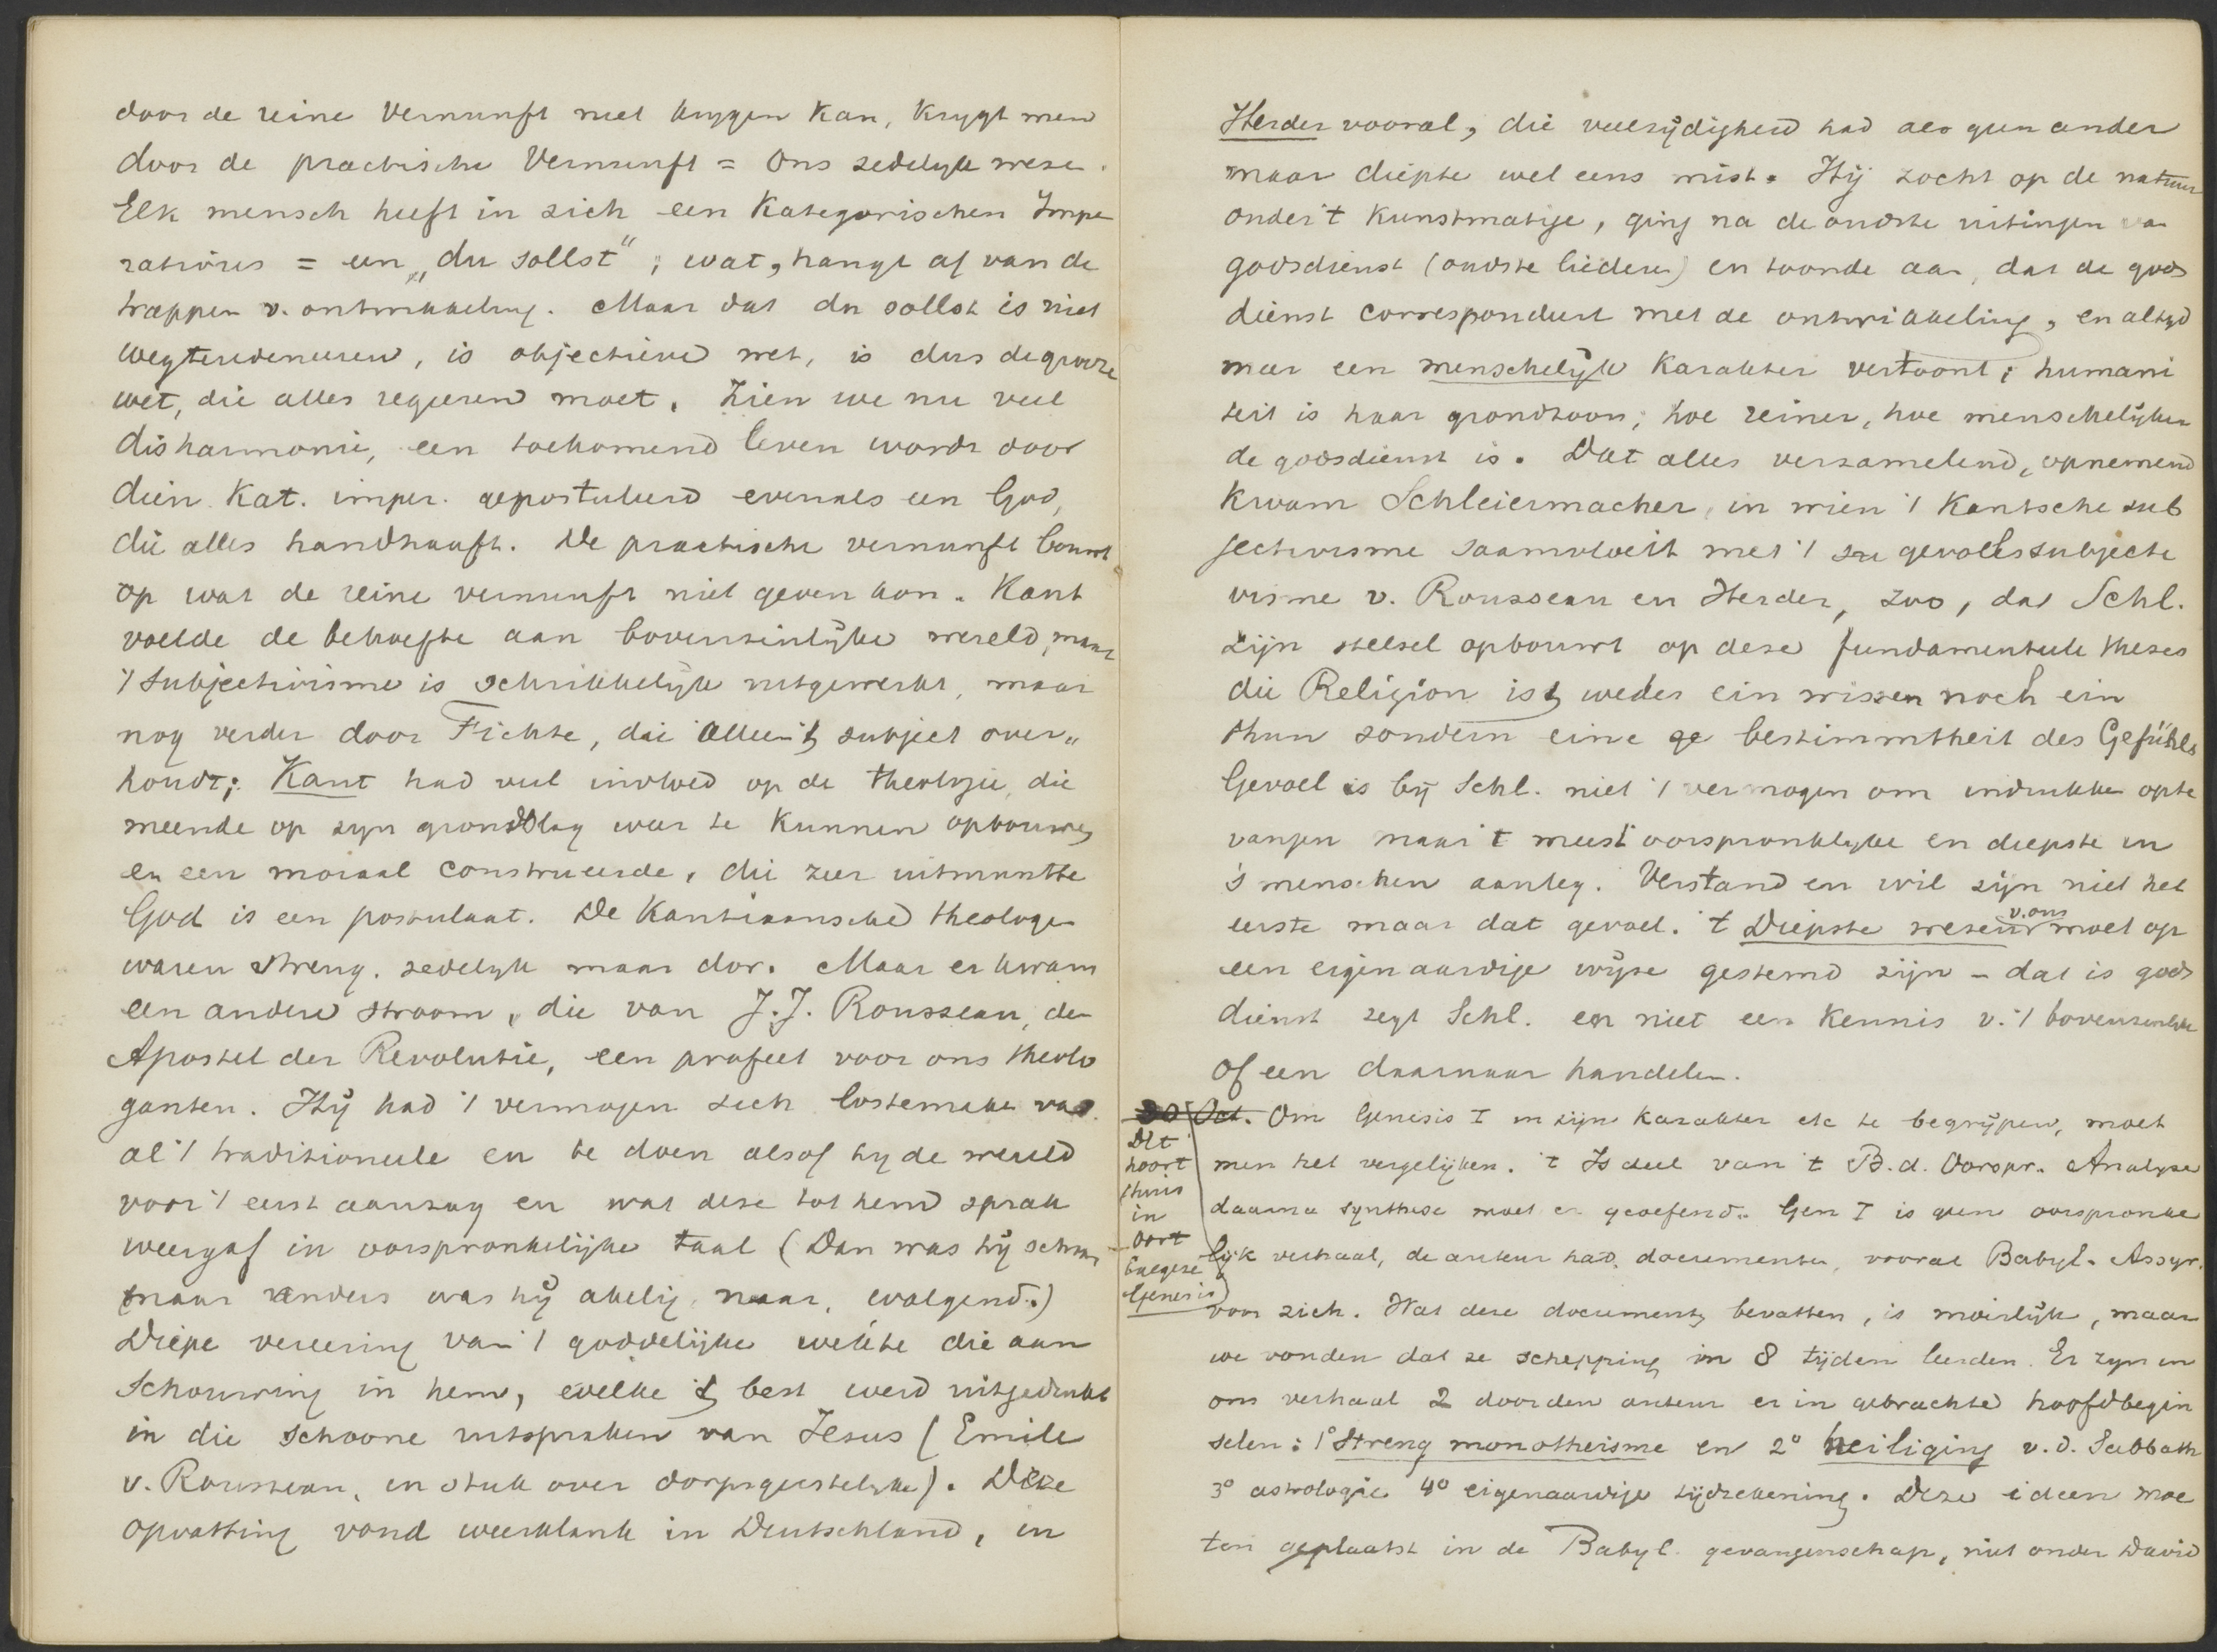 door de reine Vernunft niet krygen kan, krygt men
door de practische Vernunft = ons zedelyk weze.
Elk mensch heeft in zich een Kategorischen Impe
rativus = een „du sollst"; wat, hangt af van de
trappen v. ontwikkeling. Maar dat du sollst is niet
wegteredeneeren, is objectieve wet, is dus de groote
wet, die alles regeeren moet. Zien we nu veel
disharmonie, een toekomend leven wordt door
dien Kat. imper. gepostuleerd evenals een God,
die alles handhaaft. De practische vernunft bouwt
op wat de reine vernunft niet geven kon. Kant
voelde de behoefte aan bovenzinlijke wereld, maar
't subjectivisme is schrikkelijk uitgewerkt, maar
nog verder door Fichte, die alleen 't subject over„
houdt; Kant had veel invloed op de theologie, die
meende op zyn grondslag weer te kunnen opbouwen
en een moraal construeerde, die zeer uitmuntte
God is een postulaat. De Kantiaansche theologen
waren streng. zedelyk maar dor. Maar er kwam
een andere stroom, die van J.J. Rousseau, de
Apostel der Revolutie, een profeet voor ons theolo
ganten. Hij had 't vermogen zich lostemaken van
al 't traditioneele en te doen alsof hy de wereld
voor 't eerst aanzag en wat deze tot hem sprak
weergaf in oorspronkelijke taal (Dan was hij schoon,
maar anders was hij akelig, naar, walgend.)
Diepe vereering van 't goddelijke wekte die aan
schouwing in hem, welke 't best werd uitgedrukt
in die schoone uitspraken van Jesus (Emile
v. Rousseau, en stuk over dorpsgeestelyke). Deze
opvatting vond weerklank in Deutschland, in
Herder vooral, die veelzijdigheid had als geen ander
maar diepte wel eens mist. Hij zocht op de natuur
onder 't kunstmatige, ging na de oudste uitingen van
godsdienst (oudste liederen) en toonde aan, dat de gods
dienst correspondeert met de ontwikkeling, en altyd
meer een menschelijk karakter vertoont; humani
teit is haar grondtoon; hoe reiner, hoe menschelijker
de godsdienst is. Dat alles verzamelend, opnemend
kwam Schleiermacher, in wien 't Kantsche sub
jectivisme saamvloeit met 't gevoelssubjecti
visme v. Rousseau en Herder, zoo, dat Schl.
zijn stelsel opbouwt op deze fundamenteele theses
die Religion ist weder ein wissen noch ein
thun sondern eine ge bestimmtheit des Gefühls
Gevoel is bij Schl. niet 't vermogen om indrukken opte
vangen maar 't meest oorspronklyke en diepste in
's menschen aanleg. Verstand en wil zijn niet het
eerste maar dat gevoel. 't Diepste wezen v. ons moet op
een eigenaardige wijze gestemd zijn – dat is gods
dienst zegt Schl. en niet een kennis v. 't bovenzinlyke
of een daarnaar handelen.
30 Oct. Om Genesis I in zijn karakter etc te begrijpen, moet
men het vergelijken. 't Is deel van 't B.d. Oorspr. Analyse
daarna synthese moet er geoefend. Gen I is geen oorspronke
lijk verhaal, de auteur had documenten, vooral Babyl. Assyr.
voor zich. Wat deze documenten bevatten, is moeilijk, maar
we vonden dat ze schepping in 8 tijden leerden. Er zyn in
ons verhaal 2 door den auteur er in gebrachte hoofdbegin
selen: 1° streng monotheisme en 2° heiliging v.d. Sabbath
3° astrologie 4° eigenaardige tijdrekening. Deze ideen moe
ten geplaatst in de Babyl. gevangenschap, niet onder David
Dit
hoort
thuis
in
oort
Exegese
Genesis